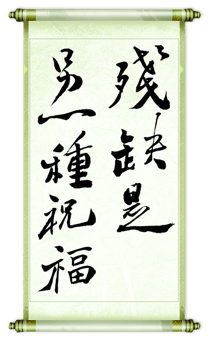 殘缺是
另一種祝福